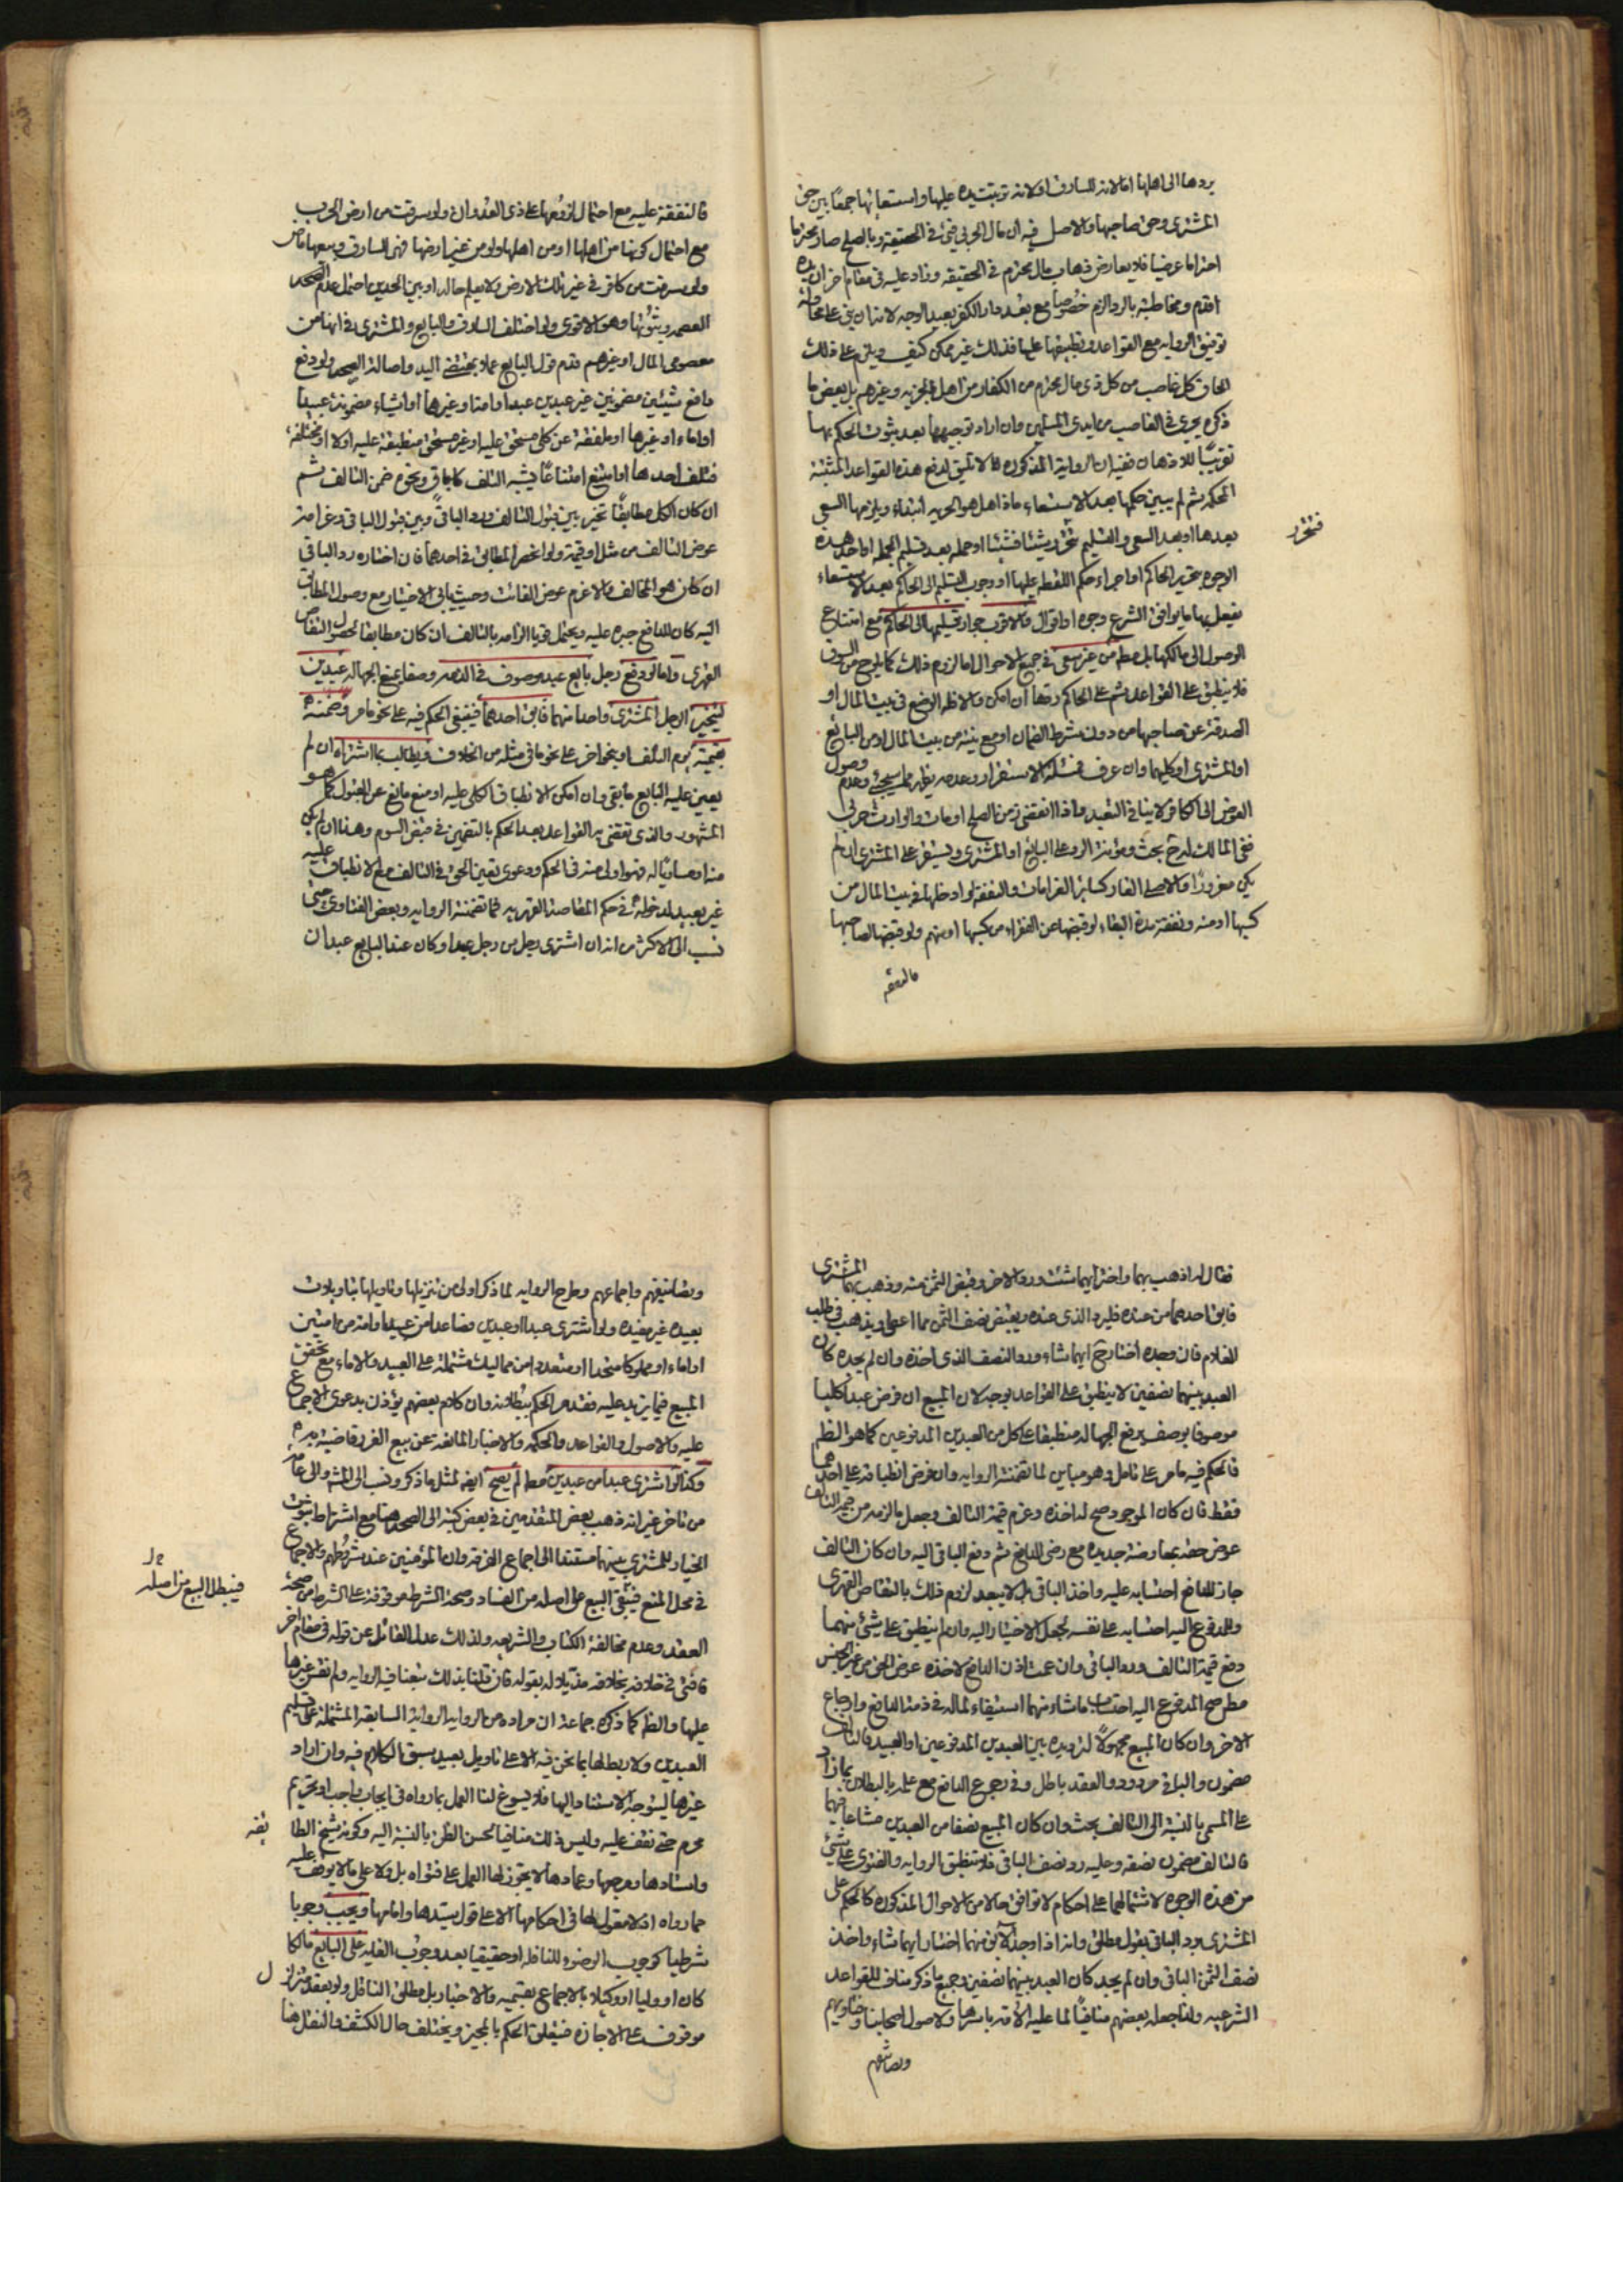 يردها الى اهلها اما لانه للسارق او لانه ترتبت يده عليها واستسعائها جمعا بين حق
المشترى وحق صاحبها والاصل فيه ان مال الحربي فئ في الحقيقة وبالصلح صار محترما
احتراما عرضيا فلا يعارض ذهاب مال محترم في الحقيقه وزاد عليه في مقام اخر ان يده
اقدم ومخاطبته بالرد الزم خصوصا مع بعد دار الكفر بعيد الوجه لانه ان بنى على محاولة
توفيق الروايه مع القواعد وتطبيقها عليها فذلك غير ممكن كيف ويلزم على ذلك
الحاق كل غاصب من كل ذى مال محترم من الكفار من اهل الجزيه وغيرهم بل بعض ما
ذكره يجرى في الغاصب من ايدى المسلمين وان اراد توجيهها بعد ثبوت الحكم بها
تقريبا للاذهان ففيه ان الرواية المذكوره لا تليق لدفع هذه القواعد المثبتة
المحكمه ثم لم يبين حكمها بعد الاستسعاء ماذا هل هو الحريه ابتداء ويلزمها السعى
بعدها او بعد السعى والتسليم تتحرر شيئا فشيئا او جمله بعد تسليم الجمله او احد هذه
فتتحرر
الوجوه بتحرير الحاكم او اجراء حكم اللقطه عليها او وجوب التسليم الى الحاكم بعد الاستسعاء
يفعل بها ما يوافق الشرع وجوه او اقوال والاقرب جواز تسليمها الى الحاكم مع امتناع
الوصول الى مالكها بل مطم من غير سعى في جميع الاحوال اما لزوم ذلك كما يلوح من السوق
فلا ينطبق على القواعد ثم على الحاكم ردها ان امكن والاظهر الوضع في بيت المال او
الصدقة عن صاحبها من دون شرط الضمان او مع منه من بيت المال او من البائع
او المشترى او كليهما وان عرف فمسئلة الاستقرار وعدمه يظهر مما سيجئ وعدم وصول
العوض الى الكافر لا ينافي التعبد واذا انقضى زمن الصلح او مات والوارث حربى
ففى المالك له ح بحث ومؤنة الرد على البائع او المشترى ويستقر على المشترى ان لم
يكن مغرورا والا فعلى الغار كسائر الغرامات والنفقة لو ادخلها في بيت المال من
كسبها او منه ونفقة مدة البقاء لو قبضها عن الفقراء من كسبها او منهم ولو قبضها لصاحبها
فالنفقه
فالنفقة عليه مع احتمال لزومها على ذى العدوان ولو سرقت من ارض الحرب
مع احتمال كونها من اهلها او من اهلها ولو من غير ارضها فهى للسارق وبيعها ماض
ولو سرقت من كافر في غير تلك الارض ولا يعلم حاله او بين الحدين احتمل عدم الصحه
العصمه وثبوتها وهو الاقوى ولو اختلف السارق والبايع والمشترى في انها من
معصومى المال او غيرهم قدم قول البايع عملا بمقتضى اليد واصالة الصحه ولو دفع
دافع شيئين مضمونين غير عبدين عبدا وامتا وغيرها او اشياء مضمونة عبيدا
او اماء او غيرها او ملفقة عن كلى مستحق عليه او غير مستحق منطبقة عليه اولا او مختلفه
فتلف احدها او امتنع امتناعا يشبه التلف كاباق ونحوه ضمن التالف ثم
ان كان الكل مطابقا تخير بين قبول التالف ورد الباقى وبين قبول الباقى وغرامة
عوض التالف من مثل او قيمة ولو انحصر المطابق في احدهما فان اختاره رد الباقى
ان كان هو المخالف والا غرم عوض الفائت وحيث يابى الاختيار مع وصول المطابق
اليه كان للدافع جبره عليه ويحتمل قويا الزامه بالتالف ان كان مطابقا لحصول التقاص
القهرى واما لو دفع رجل بايع عبد موصوف في الذمه وصفا يمنع الجهاله عبدين
ليتخير الرجل المشترى واحدا منهما فابق احدهما فينبغى الحكم فيه على نحو ما مر وضمنه
بقيمته يوم التلف او بنحو اخر على نحو ما في مثله من الخلاف ويطالب بما اشتراه ان لم
يعين عليه البايع ما بقى وان امكن الانطباق الكلى عليه او منع مانع عن القبول كما هو
المشهور والذى تقتضى به القواعد بعد الحكم بالتضمين في قبض السوم وهنا ان لم يكن
منه او مساويا له فهو اولى منه في الحكم ودعوى تعين الحق في التالف مع الانطباق عليه
غير بعيد لدخوله في حكم المقاصة القهريه فما تضمنته الروايه وبعض الفتاوى حتى
نسب الى الاكثر من انه ان اشترى رجل من رجل عبدا وكان عند البايع عبدان
فقال له اذهب بهما واختر ايهما شئت ورد الاخر وقبض الثمن منه وذهب بهما المشترى
فابق احدهما من عنده فليرد الذى عنده ويقبض نصف الثمن مما اعطى ويذهب في طلب
الغلام فان وجده اختار ح ايهما شاء ورد النصف الذى اخذه وان لم يجده كان
العبد بينهما نصفين لا ينطبق على القواعد بوجه لان المبيع ان فرض عبدا كليا
موصوفا بوصف يرفع الجهاله منطبقا على كل من العبدين المدفوعين كما هو الظم
فالحكم فيه ما مر على تامل وهو مباين لما تضمنته الروايه وان فرض انطباقه على احدهما
فقط فان كان الموجود صح له اخذه وغرم قيمة التالف وجعل ما لزمه من قيمة التالف
عوض حقه بمعاوضة جديده مع رضى الدافع ثم دفع الباقى اليه وان كان التالف
جاز للدافع احتسابه عليه واخذ الباقى بل لا يبعد لزوم ذلك بالتقاص القهرى
وللمدفوع اليه احتسابه على نفسه لجعل الاختيار اليه وان لم ينطبق على شئ منهما
دفع قيمة التالف ورد الباقى وان عمت اذن الدافع لاخذه عوض الحق من غير الجنس
مطم صح للمدفوع اليه احتساب ما شاء منهما استيفاء لماله في ذمة الدافع وارجاع
الاخر وان كان المبيع مجهولا لترديده بين العبدين المدفوعين او العبيد فالتالف
مضمون والباقى مردود والعقد باطل وفى رجوع الدافع مع علمه بالبطلان بما زاد
على المسمى بالنسبة الى التالف بحث وان كان المبيع نصفا من العبدين مشاعا فيهما
فالتالف مضمون نصفه وعليه رد نصف الباقى فلا تنطبق الروايه والفتوى على شئ
من هذه الوجوه لاشتمالها على احكام لا توافق حالا من الاحوال المذكوره كالحكم على
المشترى برد الباقى بقول مطلق وانه اذا وجد الابق منهما اختار ايهما شاء واخذ
نصف الثمن الباقى وان لم يجد كان العبد بينهما نصفين وجميع ما ذكر مناف للقواعد
الشرعيه ولذا جعله بعضهم منافيا لما عليه الامه باسرها ولاصول اصحابنا وفتاويهم
وتصانيفهم
وتصانيفهم واجماعهم وطرح الروايه لما ذكر اولى من تنزيلها وتاويلها بتاويلات
بعيده غير مفيده ولو اشترى عبدا او عبدين فصاعدا من عبيد او امة من امتين
او اماء او مملوكا متحدا او متعددا من مماليك مشتملة على العبيد والاماء مع تحقق
المبيع فيما يزيد عليه فقدم الحكم ببطلانه وان كلام بعضهم يؤذن بدعوى الاجماع
عليه والاصول والقواعد والحكمه والاخبار المانعه عن بيع الغرر قاضية به
وكذا لو اشترى عبدا من عبدين مطم لم يصح ايضا لمثل ما ذكر ونسب الى المشهور والى عامة
من تاخر غير انه ذهب بعض المتقدمين في بعض كتبه الى الصحه هنا مع اشتراط ثبوت
الخيار للمشترى بينهما مستندا الى اجماع الفرقه وان المؤمنين عند شروطهم والاجماع
في محل المنع فيبقى البيع على اصله من الفساد وصحة الشرط موقوفة على الشرط من صحة
فيبطل البيع من اصله
العقد وعدم مخالفة الكتاب والشريعه ولذلك عدل القائل عن قوله في مقام اخر
فافتى في خلافه بخلافه مذيلا له بقوله فان قلنا بذلك تبعنا فيه الروايه ولم نقس غيرها
عليها والظم كما ذكره جماعة ان مراده من الروايه الرواية السابقه المشتملة على تسليم
العبدين ولا ربط لها بما نحن فيه الا على تاويل بعيد سبق الكلام فيه وان اراد
غيرها ليتوجه الاستناد اليها فلا يسوغ لنا العمل بما رواه في ايجاب واجب او تحريم
محرم حتى نقف عليه وليس ذلك منافيا لحسن الظن بالنسبة اليه وكونه شيخ الطا
ئفه
واستادها ومرجعها وعمادها لا يجوز لها العمل على فتواه بل ولا على ما لا يوقف عليه
مما رواه اذ لا معول لها في احكامها الا على قول سيدها وامامها ويجب وجوبا
شرطيا كوجوب الوضوء للنافله او حقيقيا بعد وجوب الغايه على البايع مالكا
كان او وليا او وكيلا بالاجماع بقسميه والاخبار بل مطلق الناقل ولو بعقد متزلزل
موقوف على الاجازه فيتعلق الحكم بالمجيز ويختلف حال الكشف والنقل هنا